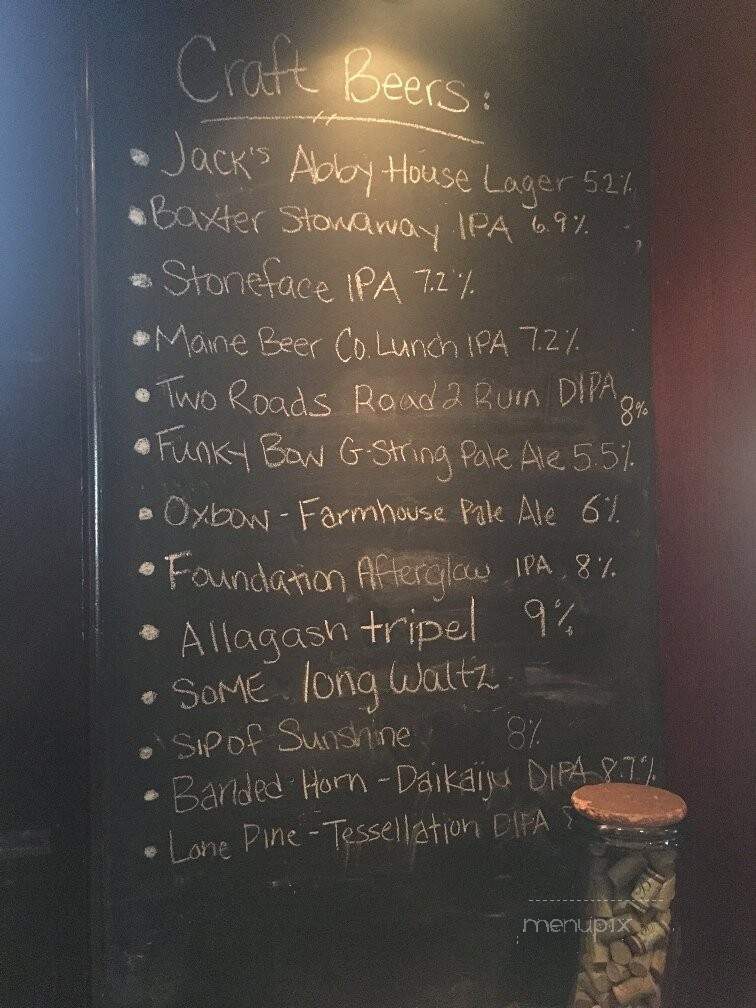 Craft Beers:
• Jack's Abby House Lager 5.2%
• Baxter Stowaway IPA 6.9%
• Stoneface IPA 7.2%
• Maine Beer Co. Lunch IPA 7.2%
• Two Roads Road 2 Ruin DIPA 8%
• Funky Bow G-String Pale Ale 5.5%
• Oxbow - Farmhouse Pale Ale 6%
• Foundation Afterglow IPA 8%
• Allagash tripel 9%
• SoME long Waltz
• Sip of Sunshine 8%
• Banded Horn - Daikaiju DIPA 8.7%
• Lone Pine - Tessellation DIPA
menupix